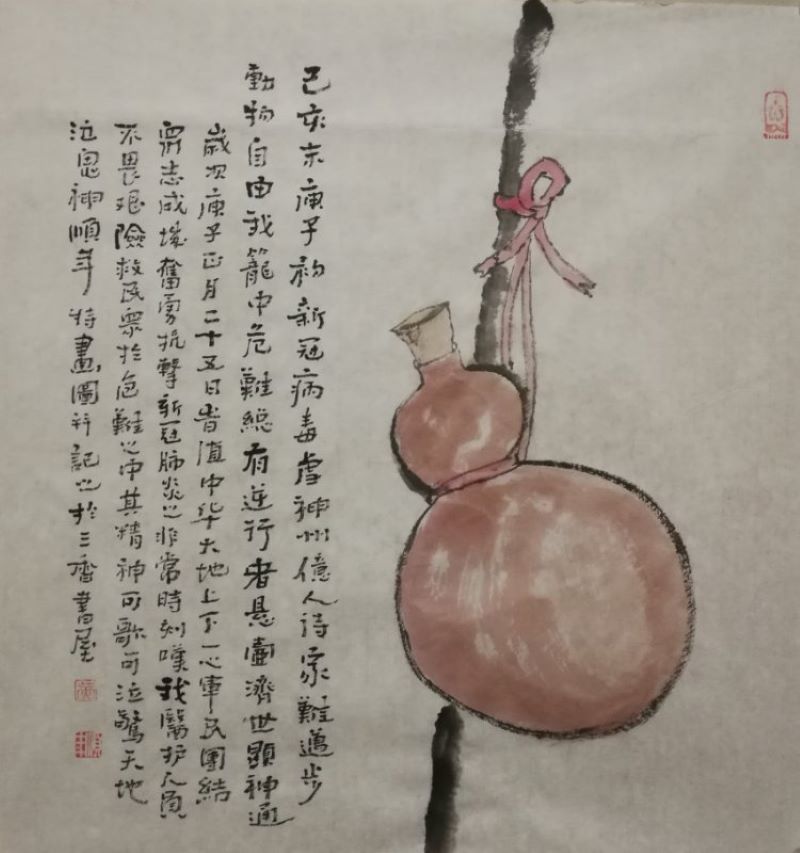 己亥末庚子初新冠病毒虐神州億人待家難邁步
動物自由我籠中危難總有逆行者悬壷濟世顯神通
歲次庚子正月二十五日眷值中华大地上下一心軍民團結
眾志成城奮勇抗擊新冠肺炎之非常時刻嘆我醫护人員
不畏艰險救民眾於危難之中其精神可歌可泣驚天地
泣鬼神順年特畫圖并記之於三痴書屋